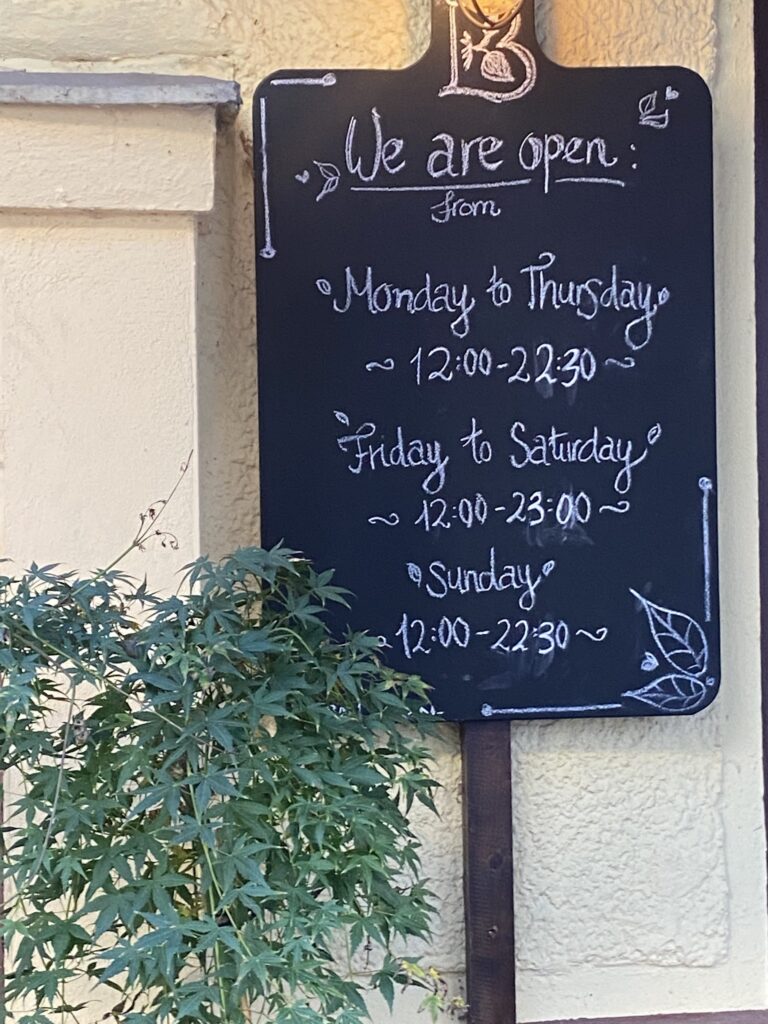 B
We are open:
from
Monday to Thursday
~ 12:00-22:30 ~
Friday to Saturday
~ 12:00-23:00 ~
Sunday
~ 12:00-22:30 ~